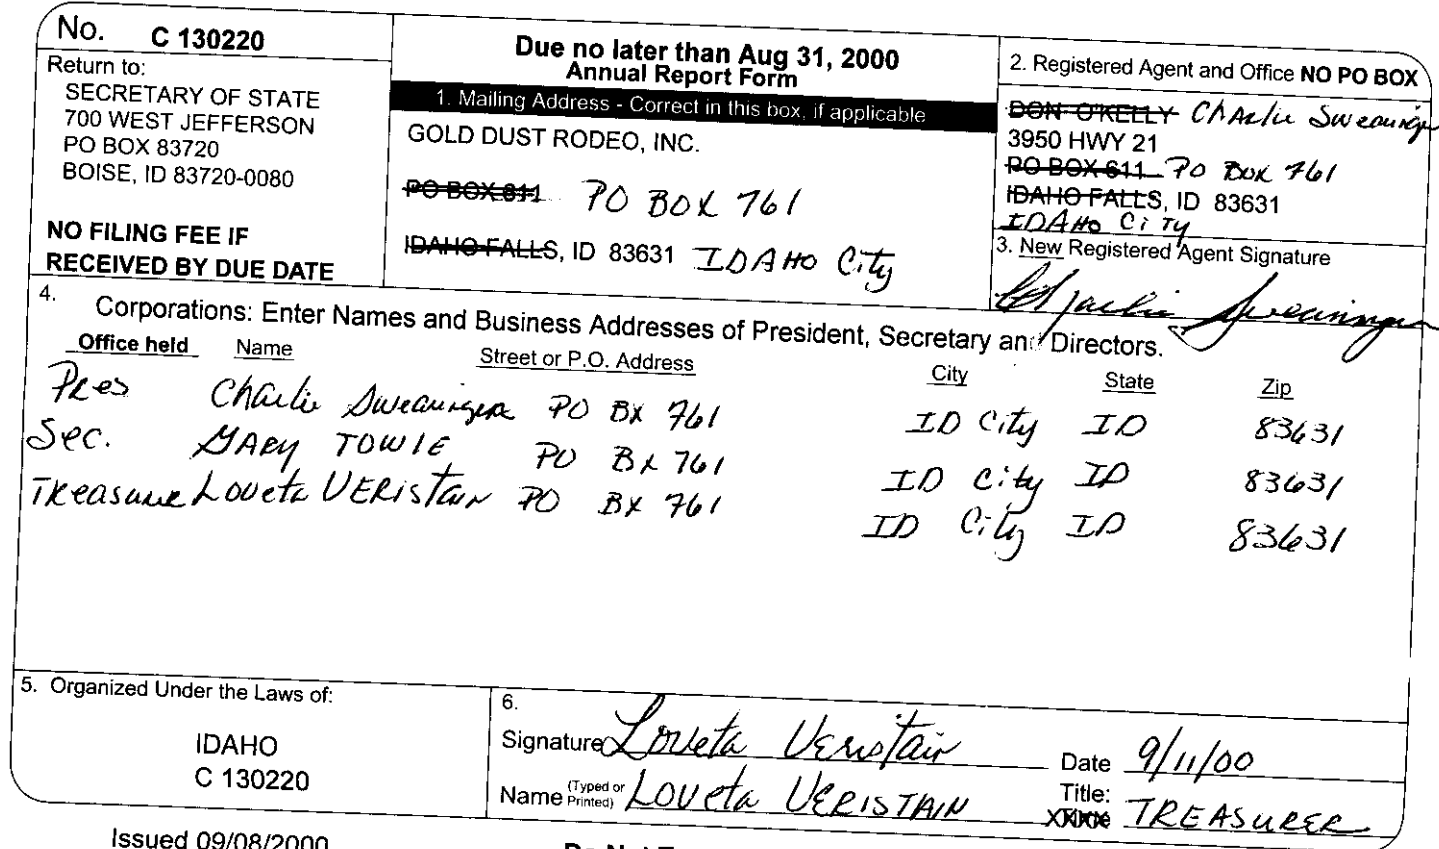 No. C 130220
Return to:
SECRETARY OF STATE
700 WEST JEFFERSON
PO BOX 83720
BOISE, ID 83720-0080
NO FILING FEE IF
RECEIVED BY DUE DATE
Due no later than Aug 31, 2000
Annual Report Form
1. Mailing Address - Correct in this box, if applicable
GOLD DUST RODEO, INC.
PO BOX 811 PO BOX 761
IDAHO FALLS, ID 83631 IDAHO City
2. Registered Agent and Office NO PO BOX
DON O'KELLY Charlie Swearingen
3950 HWY 21
PO BOX 611 PO BOX 761
IDAHO FALLS, ID 83631
IDAHO CITY
3. New Registered Agent Signature
Charlie Swearingen
4. Corporations: Enter Names and Business Addresses of President, Secretary and Directors.
Office held Name Street or P.O. Address City State Zip
Pres Charlie Swearingen PO BX 761 ID City ID 83631
Sec. GARY TOWIE PO BX 761 ID City ID 83631
Treasure Loveta VERISTAIN PO BX 761 ID City ID 83631
5. Organized Under the Laws of:
IDAHO
C 130220
6.
Signature Loveta Veristain Date 9/11/00
Name (Typed or Printed) LOVeta VERISTAIN Title: TREASURER
Issued 09/08/2000